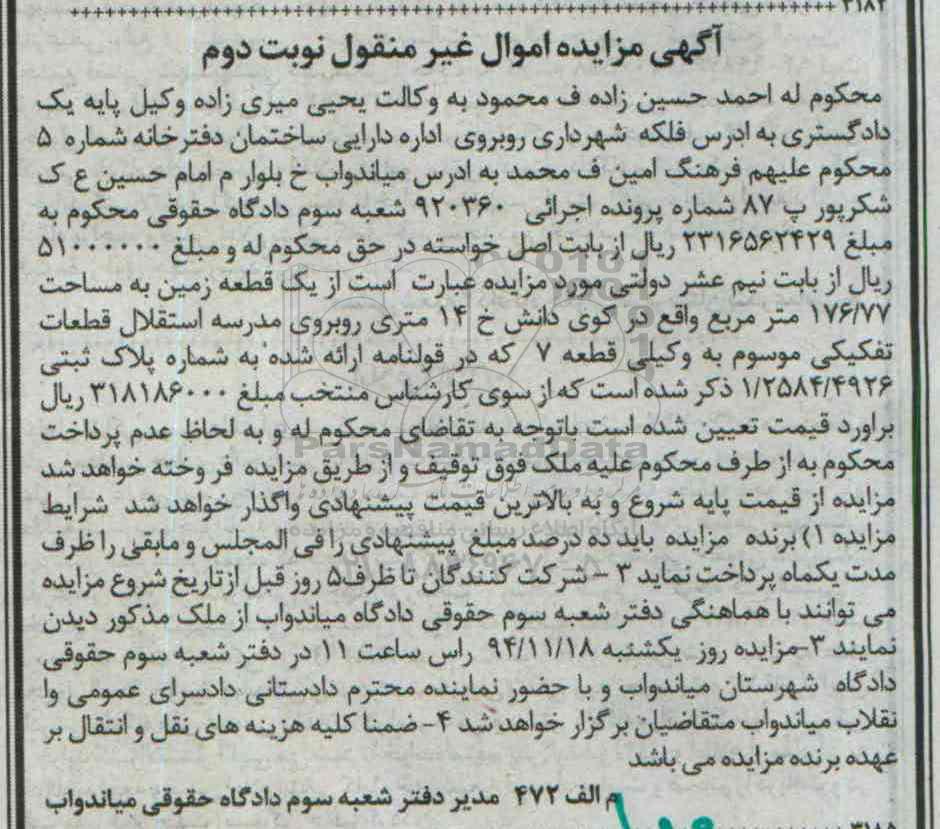 ۳۱۸۴
آگهی مزایده اموال غیر منقول نوبت دوم
محکوم له احمد حسین زاده ف محمود به وکالت یحیی میری زاده وکیل پایه یک
دادگستری به ادرس فلکه شهرداری روبروی اداره دارایی ساختمان دفترخانه شماره ۵
محکوم علیهم فرهنگ امین ف محمد به ادرس میاندواب خ بلوار م امام حسین ع ک
شکرپور پ ۸۷ شماره پرونده اجرائی ۹۲۰۳۶۰ شعبه سوم دادگاه حقوقی محکوم به
مبلغ ۲۳۱۶۵۶۲۴۲۹ ریال از بابت اصل خواسته در حق محکوم له و مبلغ ۵۱۰۰۰۰۰۰
ریال از بابت نیم عشر دولتی مورد مزایده عبارت است از یک قطعه زمین به مساحت
۱۷۶/۷۷ متر مربع واقع در کوی دانش خ ۱۴ متری روبروی مدرسه استقلال قطعات
تفکیکی موسوم به وکیلی قطعه ۷ که در قولنامه ارائه شده به شماره پلاک ثبتی
۱/۲۵۸۴/۴۹۲۶ ذکر شده است که از سوی کارشناس منتخب مبلغ ۳۱۸۱۸۶۰۰۰ ریال
براورد قیمت تعیین شده است باتوجه به تقاضای محکوم له و به لحاظ عدم پرداخت
محکوم به از طرف محکوم علیه ملک فوق توقیف و از طریق مزایده فروخته خواهد شد
مزایده از قیمت پایه شروع و به بالاترین قیمت پیشنهادی واگذار خواهد شد شرایط
مزایده ۱) برنده مزایده باید ده درصد مبلغ پیشنهادی را فی المجلس و مابقی را ظرف
مدت یکماه پرداخت نماید ۳ – شرکت کنندگان تا ظرف۵ روز قبل ازتاریخ شروع مزایده
می توانند با هماهنگی دفتر شعبه سوم حقوقی دادگاه میاندواب از ملک مذکور دیدن
نمایند ۳-مزایده روز یکشنبه ۹۴/۱۱/۱۸ راس ساعت ۱۱ در دفتر شعبه سوم حقوقی
دادگاه شهرستان میاندواب و با حضور نماینده محترم دادستانی دادسرای عمومی وا
نقلاب میاندواب متقاضیان برگزار خواهد شد ۴- ضمنا کلیه هزینه های نقل و انتقال بر
عهده برنده مزایده می باشد
م الف ۴۷۲ مدیر دفتر شعبه سوم دادگاه حقوقی میاندواب
۳۱۸۵
ParsNamadData